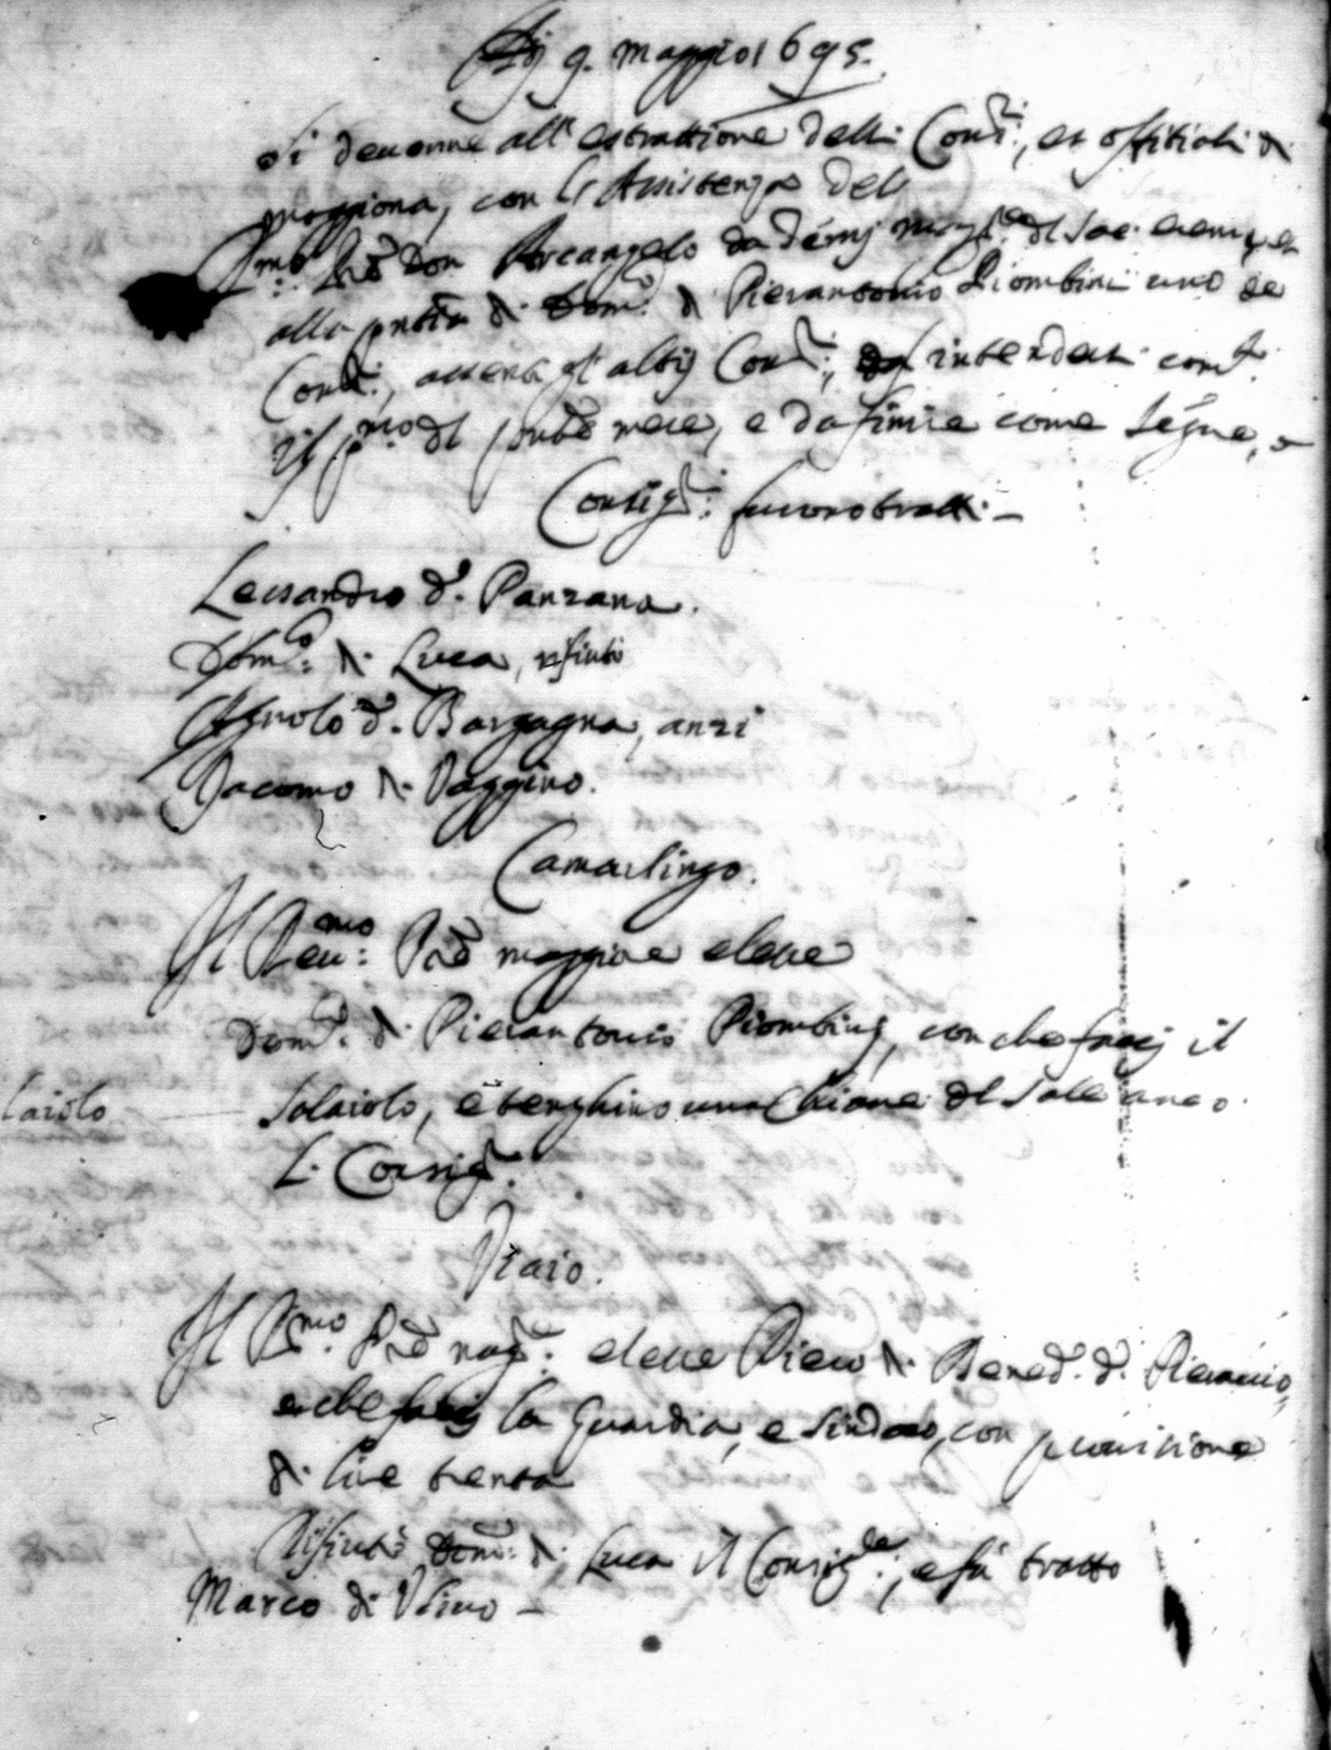 Adj 9. Maggio 1695.
Si devenne all' estrattione delli Cons.ri, et offitiali di
Moggiona, con l'Assistenza del
P. D. Don Arcangelo da Tenj Magg.re del Sac. eremo, et
alla pntia di Dom.co di Pierantonio Piombini uno de
Cons.ri, assenti gl'altri Cons.ri, da intendersi com.to
il p.mo del pnte mese, e da finire come segue, e
Consig.ri furono tratti -
Lessandro d. Panzana.
Dom.co di Luca, rifiutò
Agnolo d. Bargagna, anzi
Jacomo di Paggino.
Camarlingo.
Il Reu.mo Pre Maggiore elesse
Dom.co di Pierantonio Piombinj, con che faccj il
laiolo
Salaiolo, e tenghino una Chiave del Sale anco
li Consig.ri
Viaio.
Il R.mo Pre Magg.re elesse Piero di Bened.o d. Pieraccio,
e che faccj la Guardia, e Sindaco, con provisione
di lire trenta
Rifiutò Dom.co di Luca il Consig.re, e fù tratto
Marco di Ulivo -